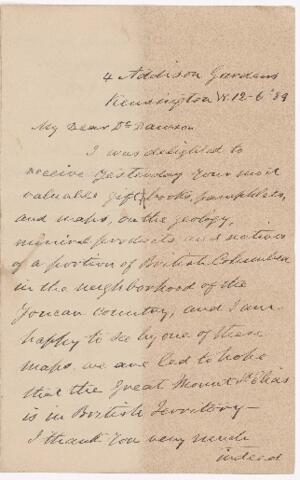 4 Addison Gardens
Kensington W. 12-6-'89
My Dear Dr Dawson
I was delighted to
receive yesterday your most
valuable gift, books, pamphlets,
and maps, on the geology,
mineral products, and natives
of a portion of British Columbia
in the neighborhood of the
country, and I am
happy to see by one of these
maps we are led to hope
that the Great Mount St Elias
is in British Territory—
I thank you very much
indeed